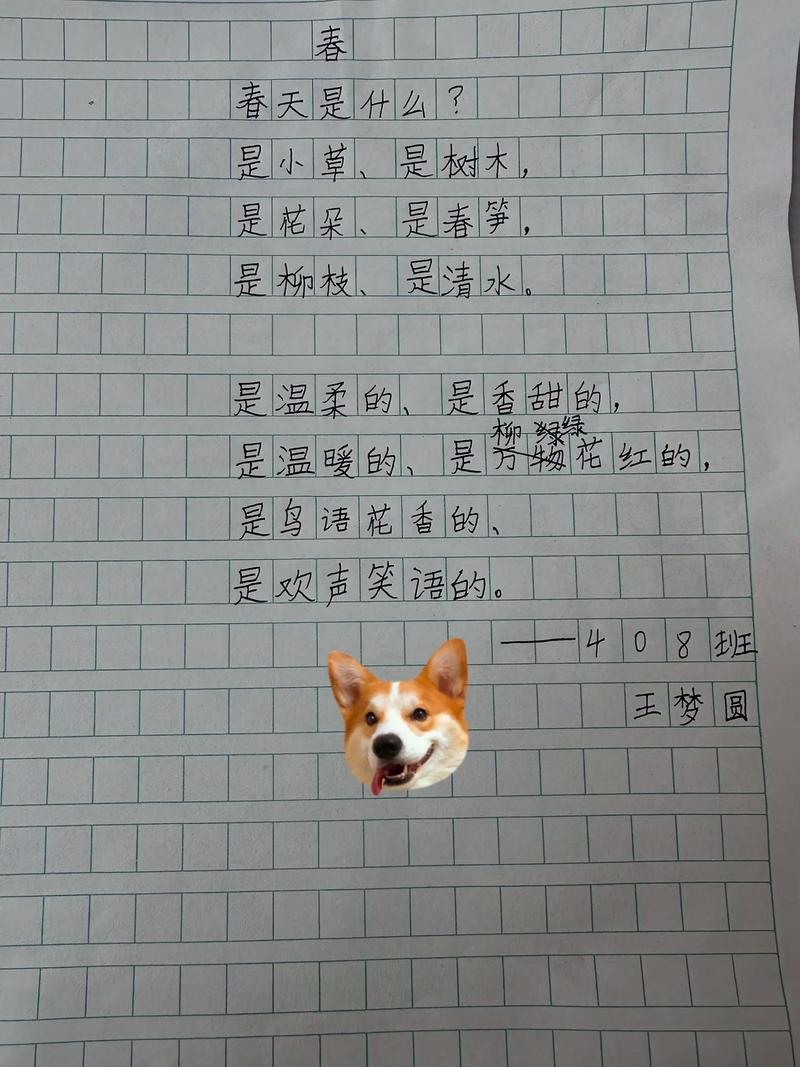 春
春天是什么？
是小草、是树木，
是花朵、是春笋，
是柳枝、是清水。
是温柔的、是香甜的，
是温暖的、是柳绿花红的，
是鸟语花香的、
是欢声笑语的。
——408班
王梦圆